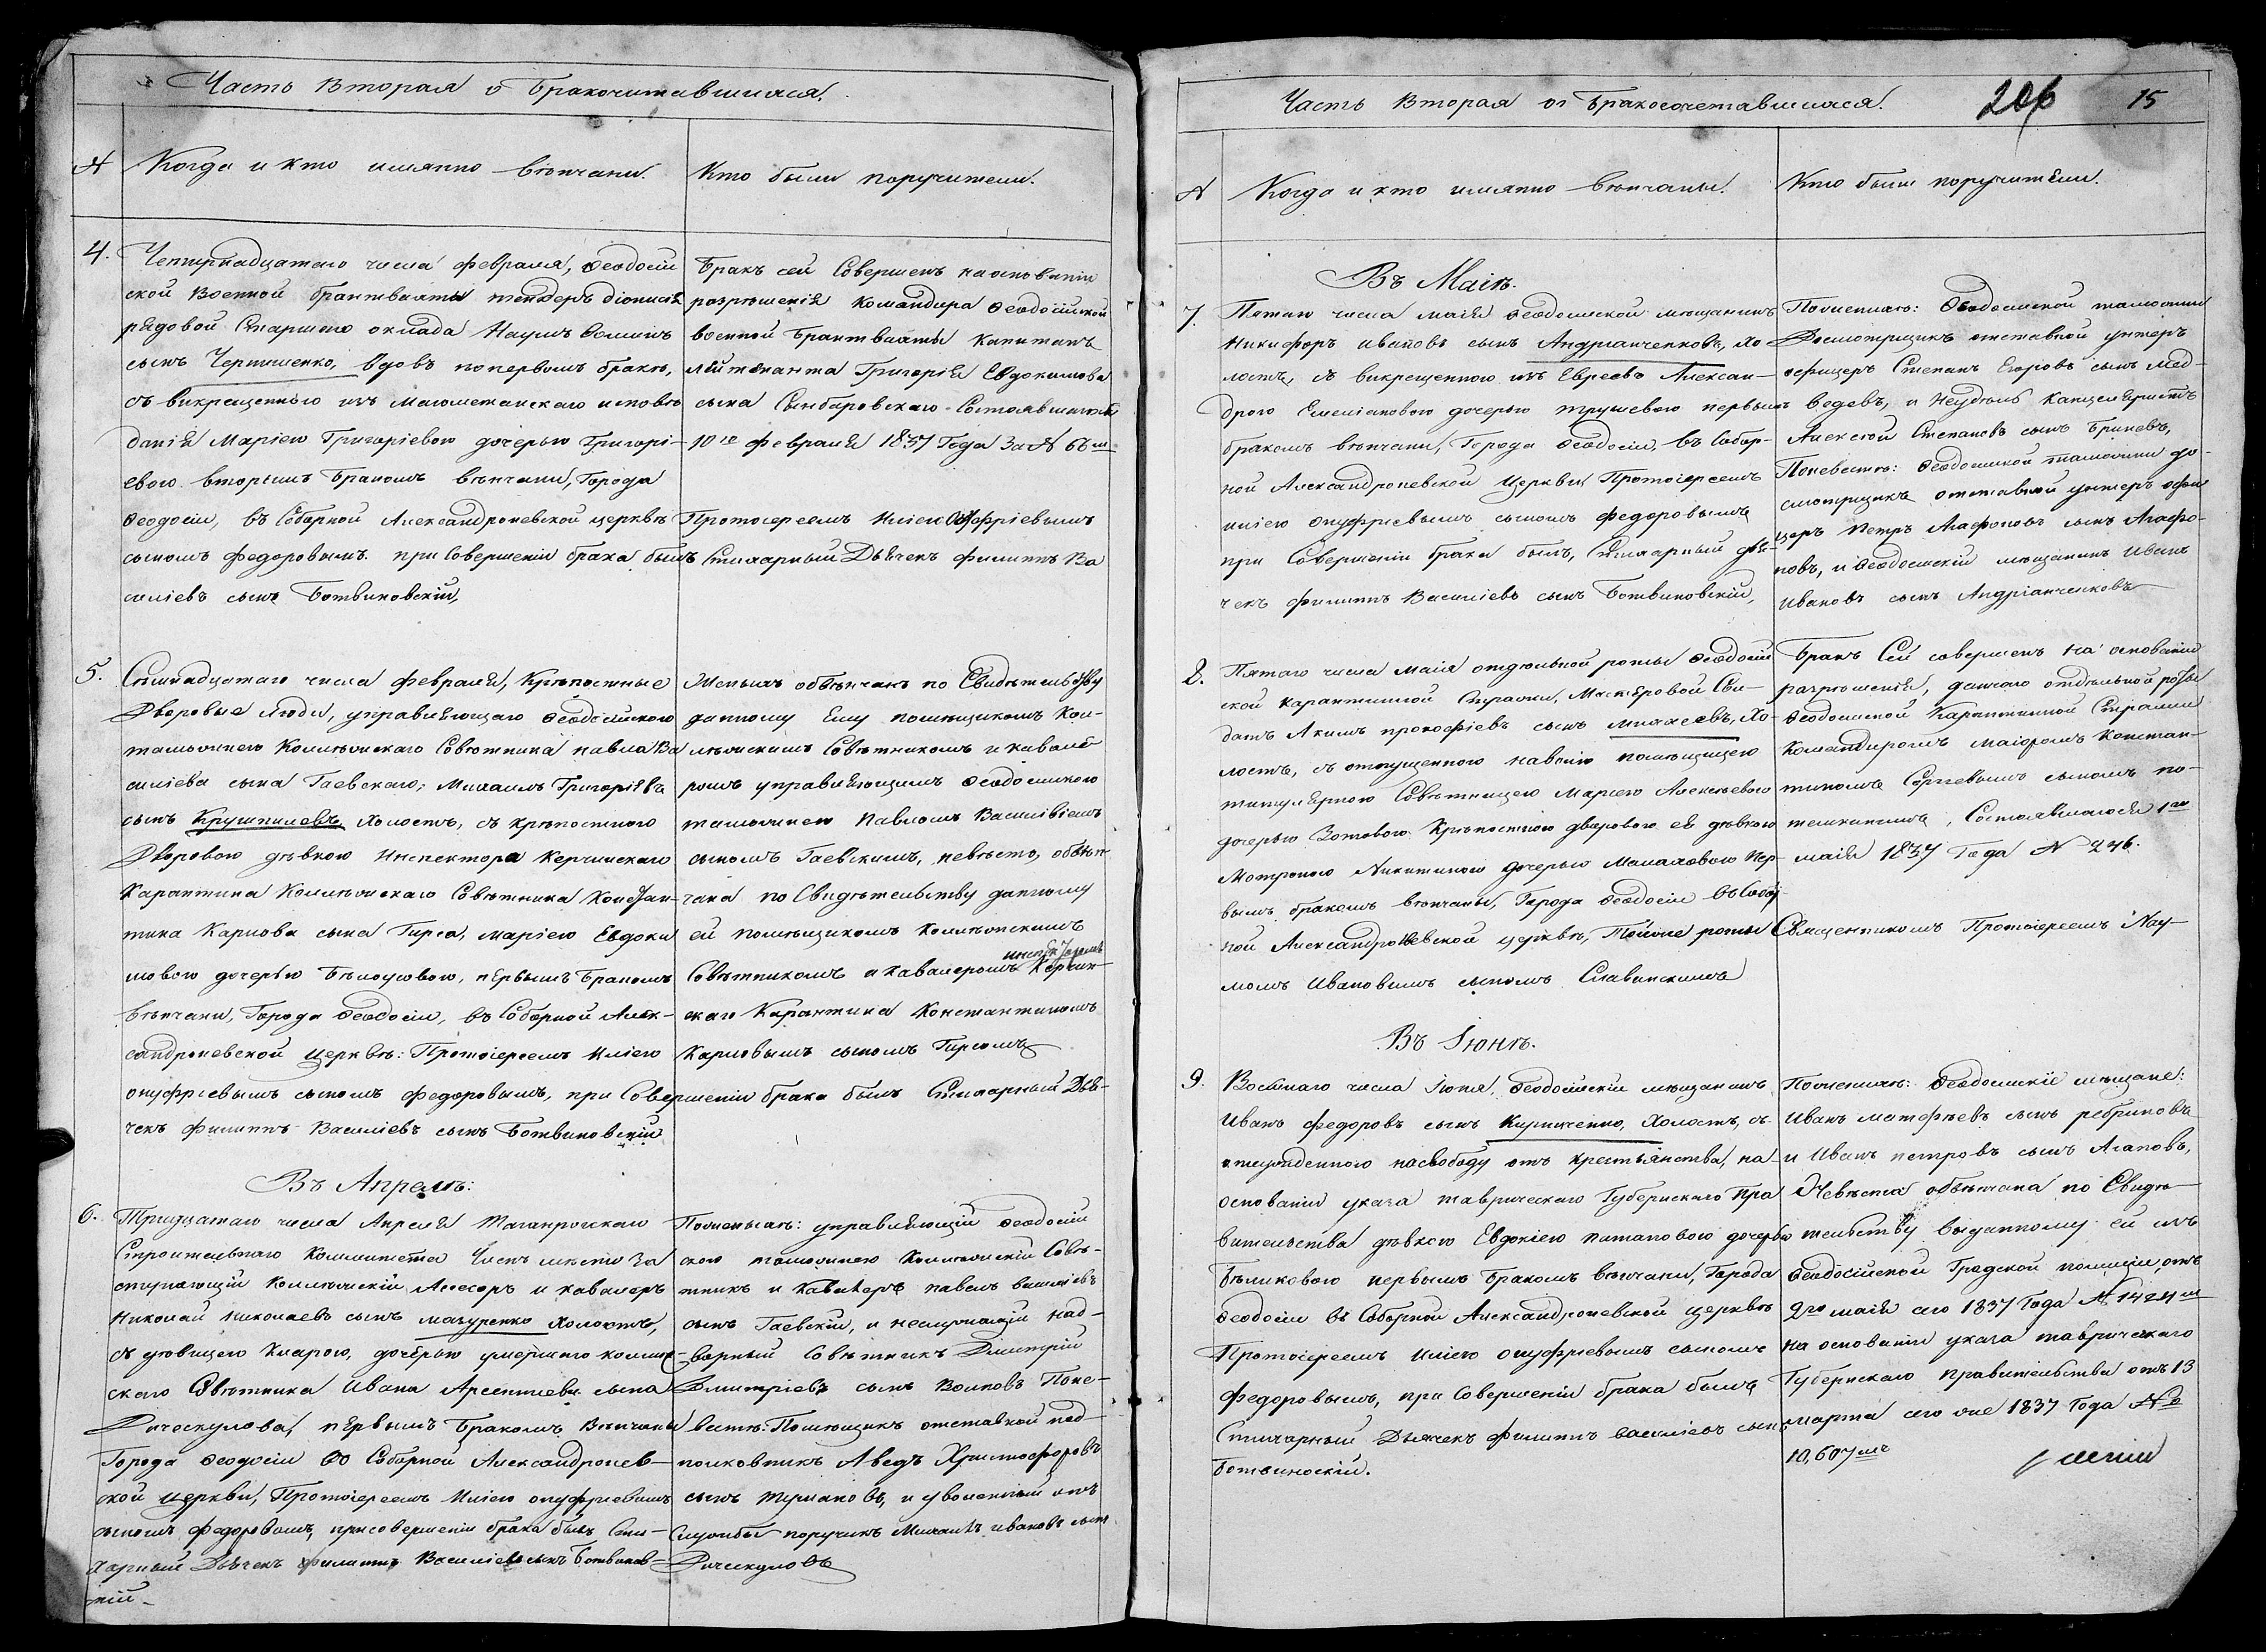 Часть Вторая о Бракочитавшихся.
№
Когда и кто имянно вѣнчани.
Кто были поручители.
4.
Четтырнадцатаго числа февраля, Ѳеодосій
ской Военной брантвахты тендеръ діонисія
рядовой Старшаго оклада Наумъ Ѳоминъ
сынъ Чернишенко, вдовъ поперьвомъ бракѣ,
съ викрещенною изъ Магометанскаго исповѣ
данія Маріею Григоріевою дочерью Григорі-
евою вторымъ бракомъ вѣнчани, Города
Ѳеодосіи, въ Соборной Александроневской церквѣ
сыномъ Федоровымъ. при Совершеніи брака былъ
силіевъ сынъ Ботвиновскій,
Бракъ сей Совершенъ на основаніи
разрѣшенія Командира Ѳеодосійской
военной Брантвахты Капитанъ
лейтенанта Григорія Евдокимова
сына Сынбаровскаго Состоявшагося
10го февраля 1837 Года За № 66м
Протоіереемъ Иліею Онуфріевымъ
Стихарный Дьячекъ Филиппъ Ва
5.
Семнадцатаго числа февраля, Крѣпостные
Дворовые люди, управляющаго Ѳеодосійскою
таможнею Коллежскаго Совѣтника павла Ва
силіева сына Гаевскаго, Михаилъ Григоріевъ
сынъ Крушпилевъ Холостъ, съ крѣпостною
Дворовою дѣвкою Инспектора Керчинскаго
Карантина Коллежскаго Совѣтника Констан-
тина Карлова сына Гирса, маріею Евдоки
мовою дочерью Бѣлоусовою, первымъ Бракомъ
вѣнчани, Города Ѳеодосіи, въ Соборной Алек-
сандроневской церквѣ: Протоіереемъ Иліею
онуфріевымъ сыномъ федоровымъ, при Совершеніи брака былъ Стихарный Дья-
чекъ филиппъ Василіевъ сынъ Ботвиновскій
Женихъ обвѣнчанъ по Свидѣтельству
данному Ему помѣщикомъ Кол-
лежскимъ Совѣтникомъ и кавале
ромъ управляющимъ Ѳеодосійскою
таможнею Павломъ Василіевымъ
сыномъ Гаевскимъ, невѣста, обвѣн-
чана по Свидѣтельству данному
ей помѣщикомъ Коллежскимъ
Совѣтникомъ и кавалеромъ Керчин-
скаго Карантина Константиномъ
Карловымъ сыномъ Гирсомъ
Въ Апрелѣ:
6.
Тридцатаго числа Апреля Таганрогскаго
Строительнаго Коммитета Членъ мѣсто За
ступающій Коллежскій Асесоръ и кавалеръ
Николай николаевъ сынъ мазуренко Холостъ,
съ дѣвицею Кларою, дочерью умершаго коллеж-
скаго Совѣтника Ивана Арсентиева сына
первымъ Бракомъ Вѣнчаны
Города Ѳеодосіи Во Соборной Александронев-
ской церкви, Протоіереемъ Иліею онуфріевымъ
сыномъ Федоровымъ, присовершеніи брака былъ Сти-
харный Дьячекъ филиппъ Василіевъ сынъ Ботвинов-
скій
Поженихѣ: управляющій Ѳеодосій
скою таможнею Коллежскій Совѣ-
тникъ и Кавалеръ павелъ василіевъ
сынъ Гаевскій, и неслужащій над-
ворный Совѣтникъ Дмитрій
Дмитріевъ сынъ Волковъ Поне-
вѣстѣ: Помѣщикъ отставной под-
полковникъ Аведъ Христофоровъ
сынъ и уволенный отъ
Службы поручикъ Михаилъ ивановъ сынъ
Часть Вторая о Бракосочетавшихся.
206
15
№
Когда и кто имянно вѣнчаны.
Кто были поручители.
Въ Маіѣ.
7.
Пятаго числа маія Ѳеодосійской мѣщанинъ
Никифоръ ивановъ сынъ Андріанченковъ, Хо
лостъ, съ викрещенною изъ Евреевъ Алексан-
дрою Емеліановою дочерью первымъ
бракомъ вѣнчани, Города Ѳеодосіи, въ Собор-
ной Александроневской Церквѣ Протоіереемъ
иліею онуфріевымъ сыномъ федоровымъ
при Совершеніи брака былъ, Стихарный дья-
чекъ филиппъ Василіевъ сынъ Ботвиновскій,
Поженихѣ: Ѳеодосійской таможни
Досмотрщикъ отставной унтеръ
офицеръ Степанъ Егоровъ сынъ Мед-
ведевъ, и Канцеляристъ
Алексѣй Степановъ сынъ
Поневѣстѣ: Ѳеодосійской таможни до-
смотрщикъ отставной унтеръ офи
церъ Петръ Агафоновъ сынъ Агафо-
новъ, и Ѳеодосійскій мѣщанинъ Иванъ
Ивановъ сынъ Андріанченковъ
8.
Пятаго числа маія отдѣльной роты Ѳеодосій
ской карантинной Стражи, Мастеровой Сол-
датъ Акимъ прокофіевъ сынъ михеевъ, Хо-
лостъ, съ отпущенною навсегда помѣщицею
титулярною Совѣтницею Маріею Алексѣевою
дочерью Зотовою Крѣпостною дворовою ея дѣвкою
Мотроною Никитиною дочерью Малаховою пер-
вымъ бракомъ вѣнчаны, Города Ѳеодосіи въ Собор-
ной Александроневской церквѣ, роты Священникомъ Протоіереемъ Нау-
момъ Ивановымъ сыномъ Славинскимъ
Бракъ Сей совершенъ на основаніи
разрѣшенія, даннаго отдѣльной роты
Ѳеодосійской Карантинной Стражи
Командиромъ маіоромъ Констан-
тиномъ Сергѣевымъ сыномъ по-
темкинымъ, Состоявшагося 1го
маія 1837 Года № 246.
Въ Іюнѣ.
9.
Восьмаго числа Іюня, Ѳеодосійскій мѣщанинъ
Иванъ федоровъ сынъ Кириченко, Холостъ, съ
отсужденною насвободу отъ крестьянства, на
основаніи указа таврическаго Губернскаго Пра
вительства дѣвкою Евдокіею патаповою дочерью
Бѣликовою первымъ Бракомъ вѣнчани, Города
Ѳеодосіи въ Соборной Александроневской церквѣ
Протоіереемъ Иліею онуфріевымъ сыномъ
Федоровымъ, при Совершеніи брака былъ
Стихарный Дьячекъ филиппъ василіевъ сынъ
Ботвиноскій.
Поженихѣ: Ѳеодосійскіе мѣщане:
Иванъ матфѣевъ сынъ ребриковъ
и Иванъ петровъ сынъ Агаповъ,
Невѣста обвѣнчана по Свидѣ
тельству выданному ей изъ
Ѳеодосійской Градской полиціи, отъ
2го маія сего 1837 Года № 1424м
на основаніи указа таврическаго
Губернскаго правительства отъ 13
марта сего же 1837 Года №
10,607мъ